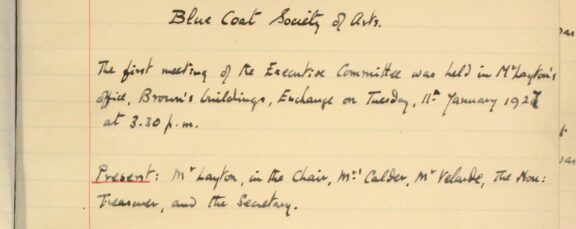 Blue Coat Society of Arts.
The first meeting of the Executive Committee was held in Mr Layton's
office, Brown's buildings, Exchange on Tuesday, 11th January 1927
at 3.30 p.m.
Present: Mr Layton, in the Chair, Mrs Calder, Mr Velarde, the Hon:
Treasurer, and the Secretary.